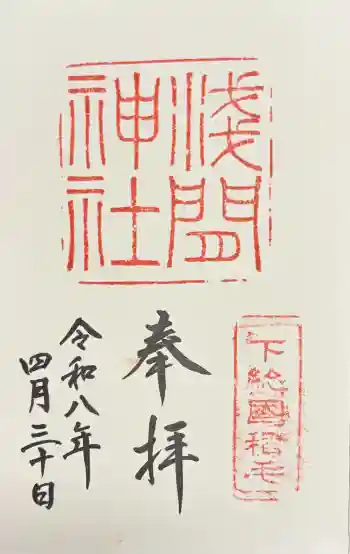 浅間
神社
下総國稲毛
奉拝
令和八年
四月三十日